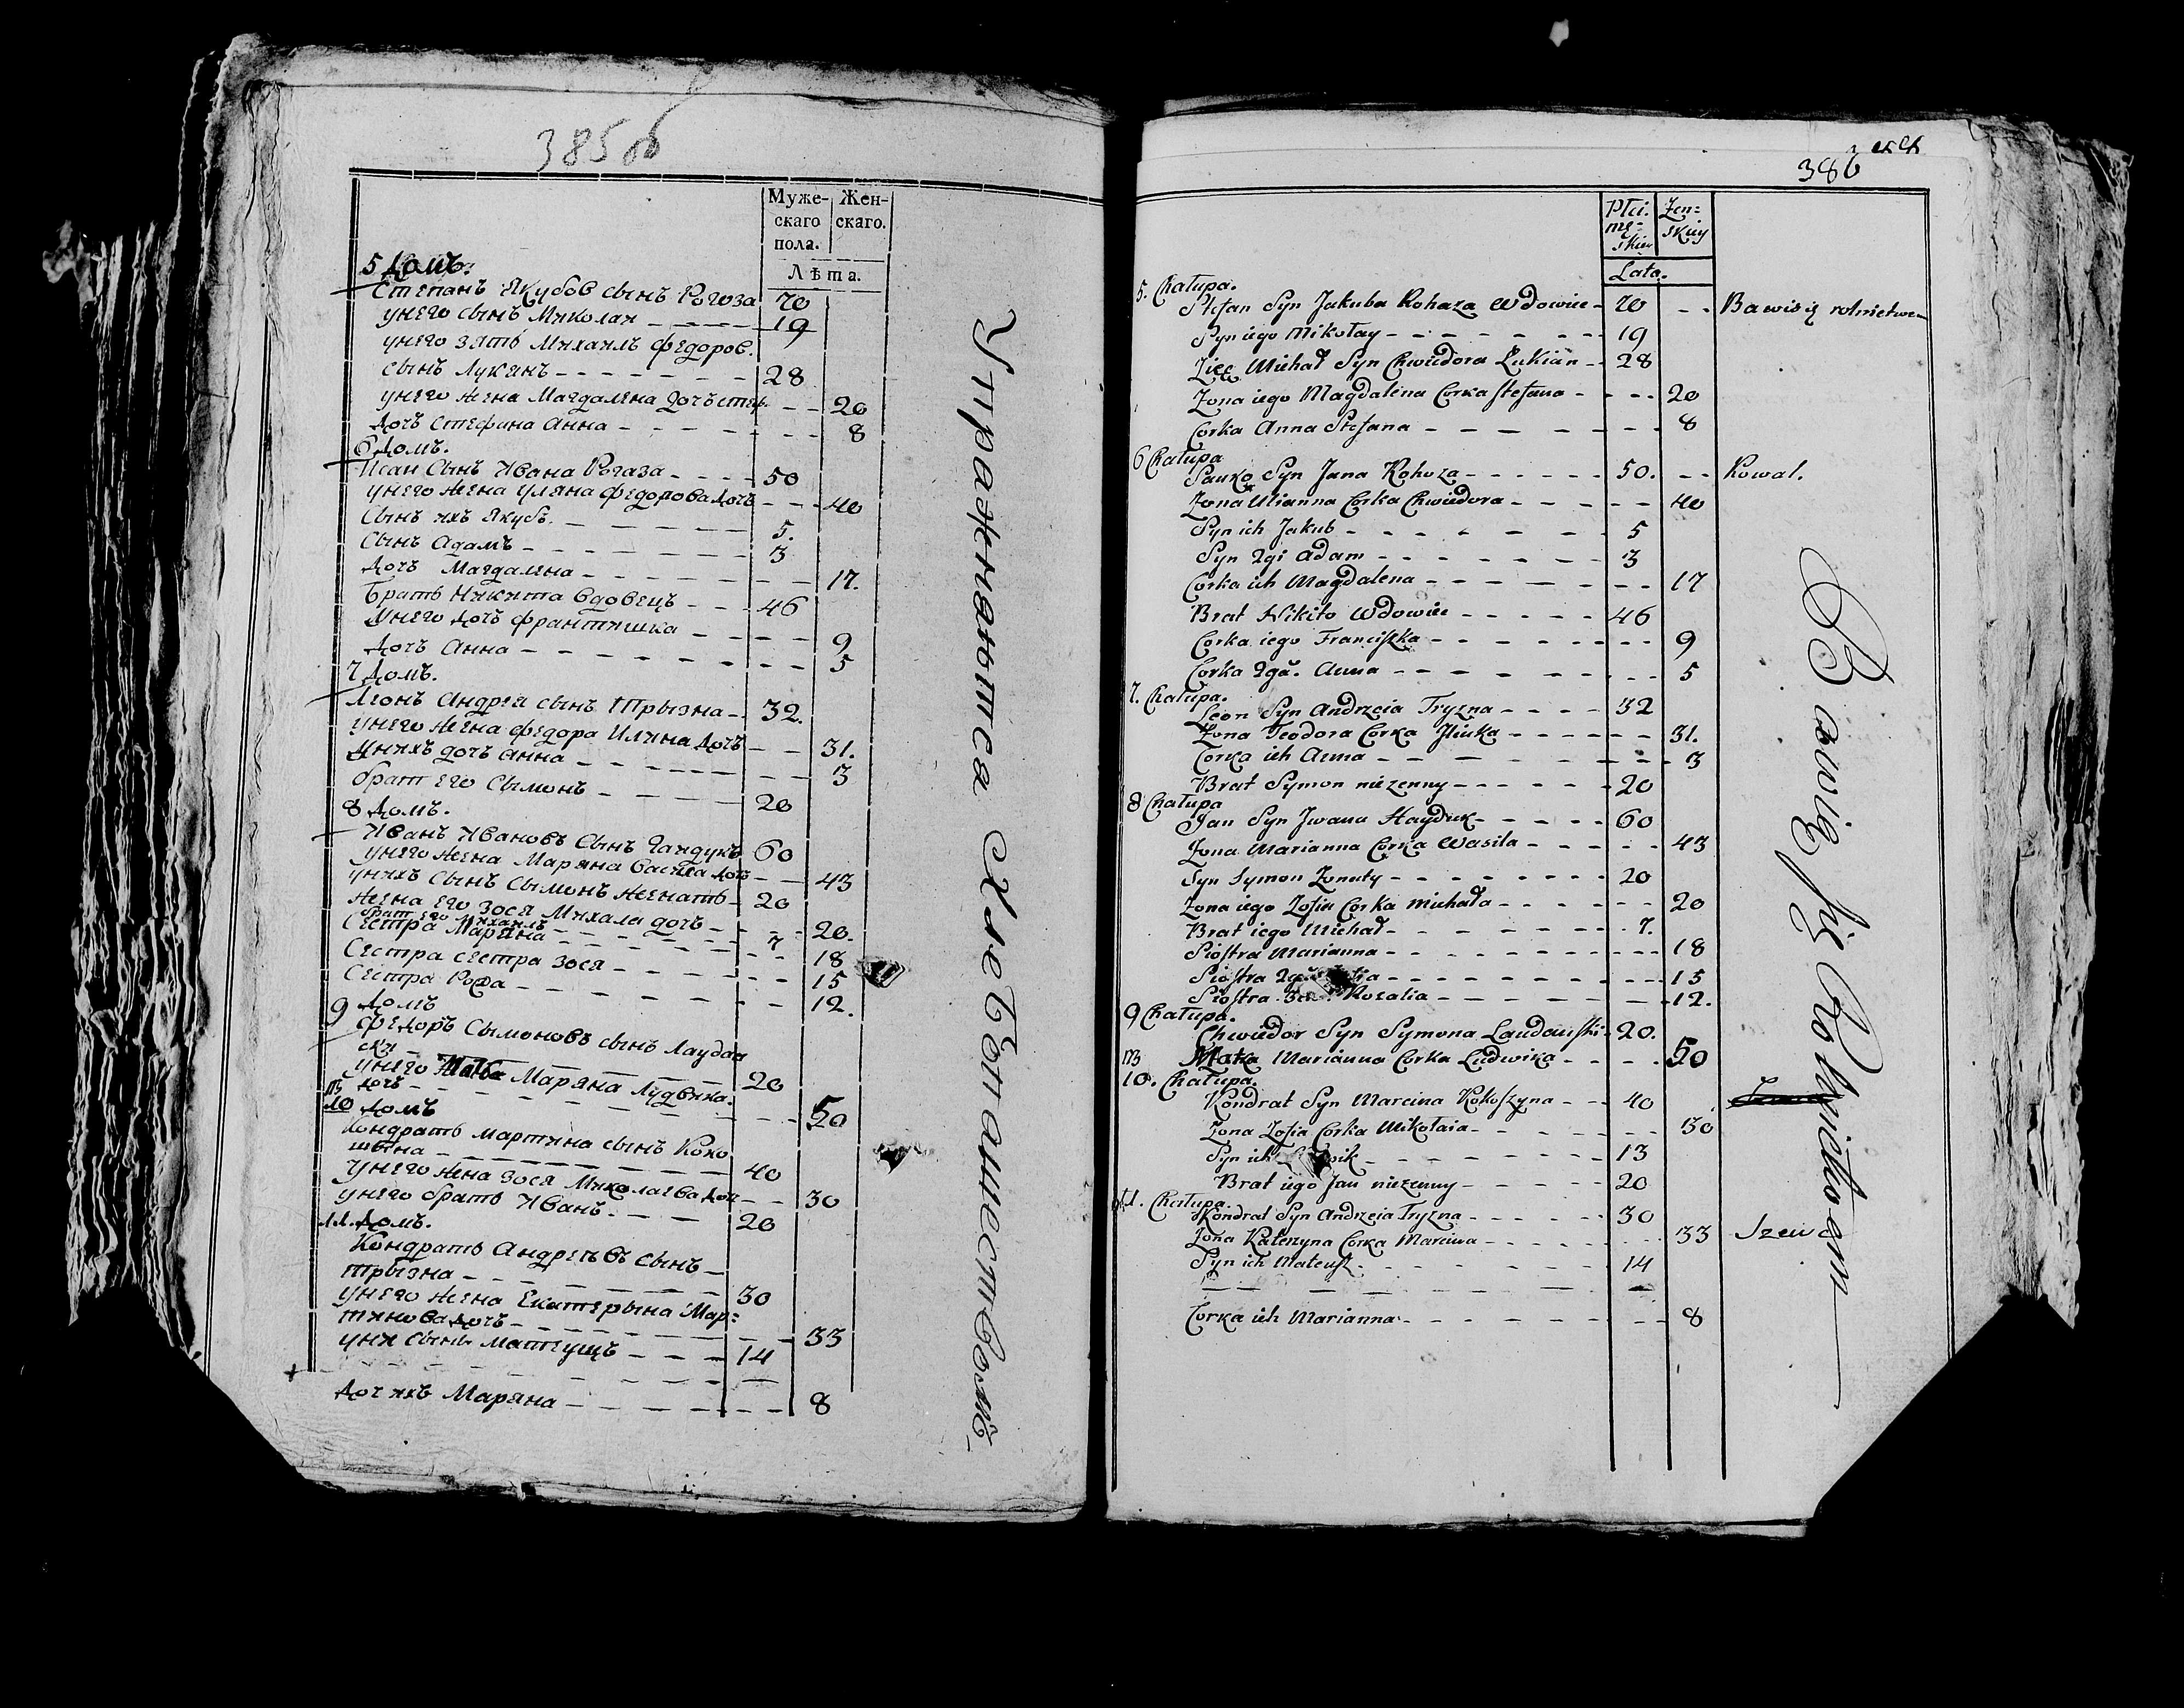 385 об
Муже- Жен-
скаго скаго.
пола.
Лѣта.
5 Домъ.
Степанъ Якубов сынъ Рогоза 70
унего сынъ Миколаи 19
унего зять Михаилъ Федоров.
сынъ Лукянъ 28
унего жена Магдалена дочъ стеф. 20
дочъ Стефана Анна 8
6 Домъ.
Сынъ Ивана Рогаза 50
унего жена Уляна Федорова дочъ 40
Сынъ ихъ Якубъ. 5.
Сынъ Адамъ 3
дочъ Магдалена 17.
Братъ Никита вдовецъ 46
унего дочъ Франтишка 9
дочъ Анна 5
7 Домъ.
Леонъ Андреи сынъ Трызна 32.
унего жена Федора Илина дочъ 31.
унихъ дочъ Анна 3
брат его Сымонъ 20
8 Домъ.
Иванъ Ивановъ Сынъ Гаидукъ 60
унего жена Маряна Василева дочъ 43
унихъ сынъ Сымонъ женатъ 20
жена его Зося Михала дочъ 20.
брат его Михаилъ 7
Сестра Маряна 18
Сестра сестра Зося 15
Сестра Роза 12.
9 Домъ
Федоръ Сымоновъ сынъ Лаудан
ски 20
унего Мать Маряна Лудвика.
дочъ 50
10 Домъ
Кондратъ Мартина сынъ Коко
шына 40
унего жена Зося Миколаева доч 30
унего братъ Иванъ. 20
11. Домъ.
Кондратъ Андреевъ сынъ
Трызна 30
унего жена Екатерына Мар:
тинова дочъ 33
уни сынъ Матеушъ 14
Доч ихъ Маряна 8
Упражняются Хлебопашествомъ
386
Płci Żen=
mę= skiey
skiey
Lata.
5. Chałupa.
Stefan Syn Jakuba Rohaza Wdowiec 70 Bawi się rolnictwem
Syn iego Mikołay 19
Zięć Michał Syn Chwiedora Łukian 28
Zona iego Magdalena Corka Stefana 20
Corka Anna Stefana 8
6 Chałupa
Sauko Syn Jana Rohoza 50. Kowal.
Zona Ulianna Corka Chwiedora 40
Syn ich Jakub 5
Syn 2gi Adam 3
Corka ich Magdalena 17
Brat Nikito Wdowiec 46
Corka iego Franciszka 9
Corka 2ga. Anna 5
7. Chałupa.
Leon Syn Andrzeia Tryzna 32
Zona Teodora Corka Jliuka 31.
Corka ich Anna 3
Brat Symon niezenny 20
8 Chałupa
Jan Syn Jwana Hayduk 60
Zona Marianna Corka Wasila 43
Syn Symon Zonaty 20
Zona iego Zofia Corka Michała 20
Brat iego Michał 7.
Siostra Marianna 18
Siostra 15
Siostra Rozalia 12.
9 Chałupa.
Chwiedor Syn Symona Laudański 20.
Matka Marianna Corka Ludwika 50
10. Chałupa.
Kondrat Syn Marcina Kokoszyna 40
Zona Zofia Corka Mikołaia 30
Syn ich 13
Brat iego Jan niezenny 20
11. Chałupa.
Kondrat Syn Andrzeia Tryzna 30
Zona Katerzyna Corka Marcina 33 Szewc
Syn ich Mateusz 14
Corka ich Marianna 8
Bawią się Rolnictwem